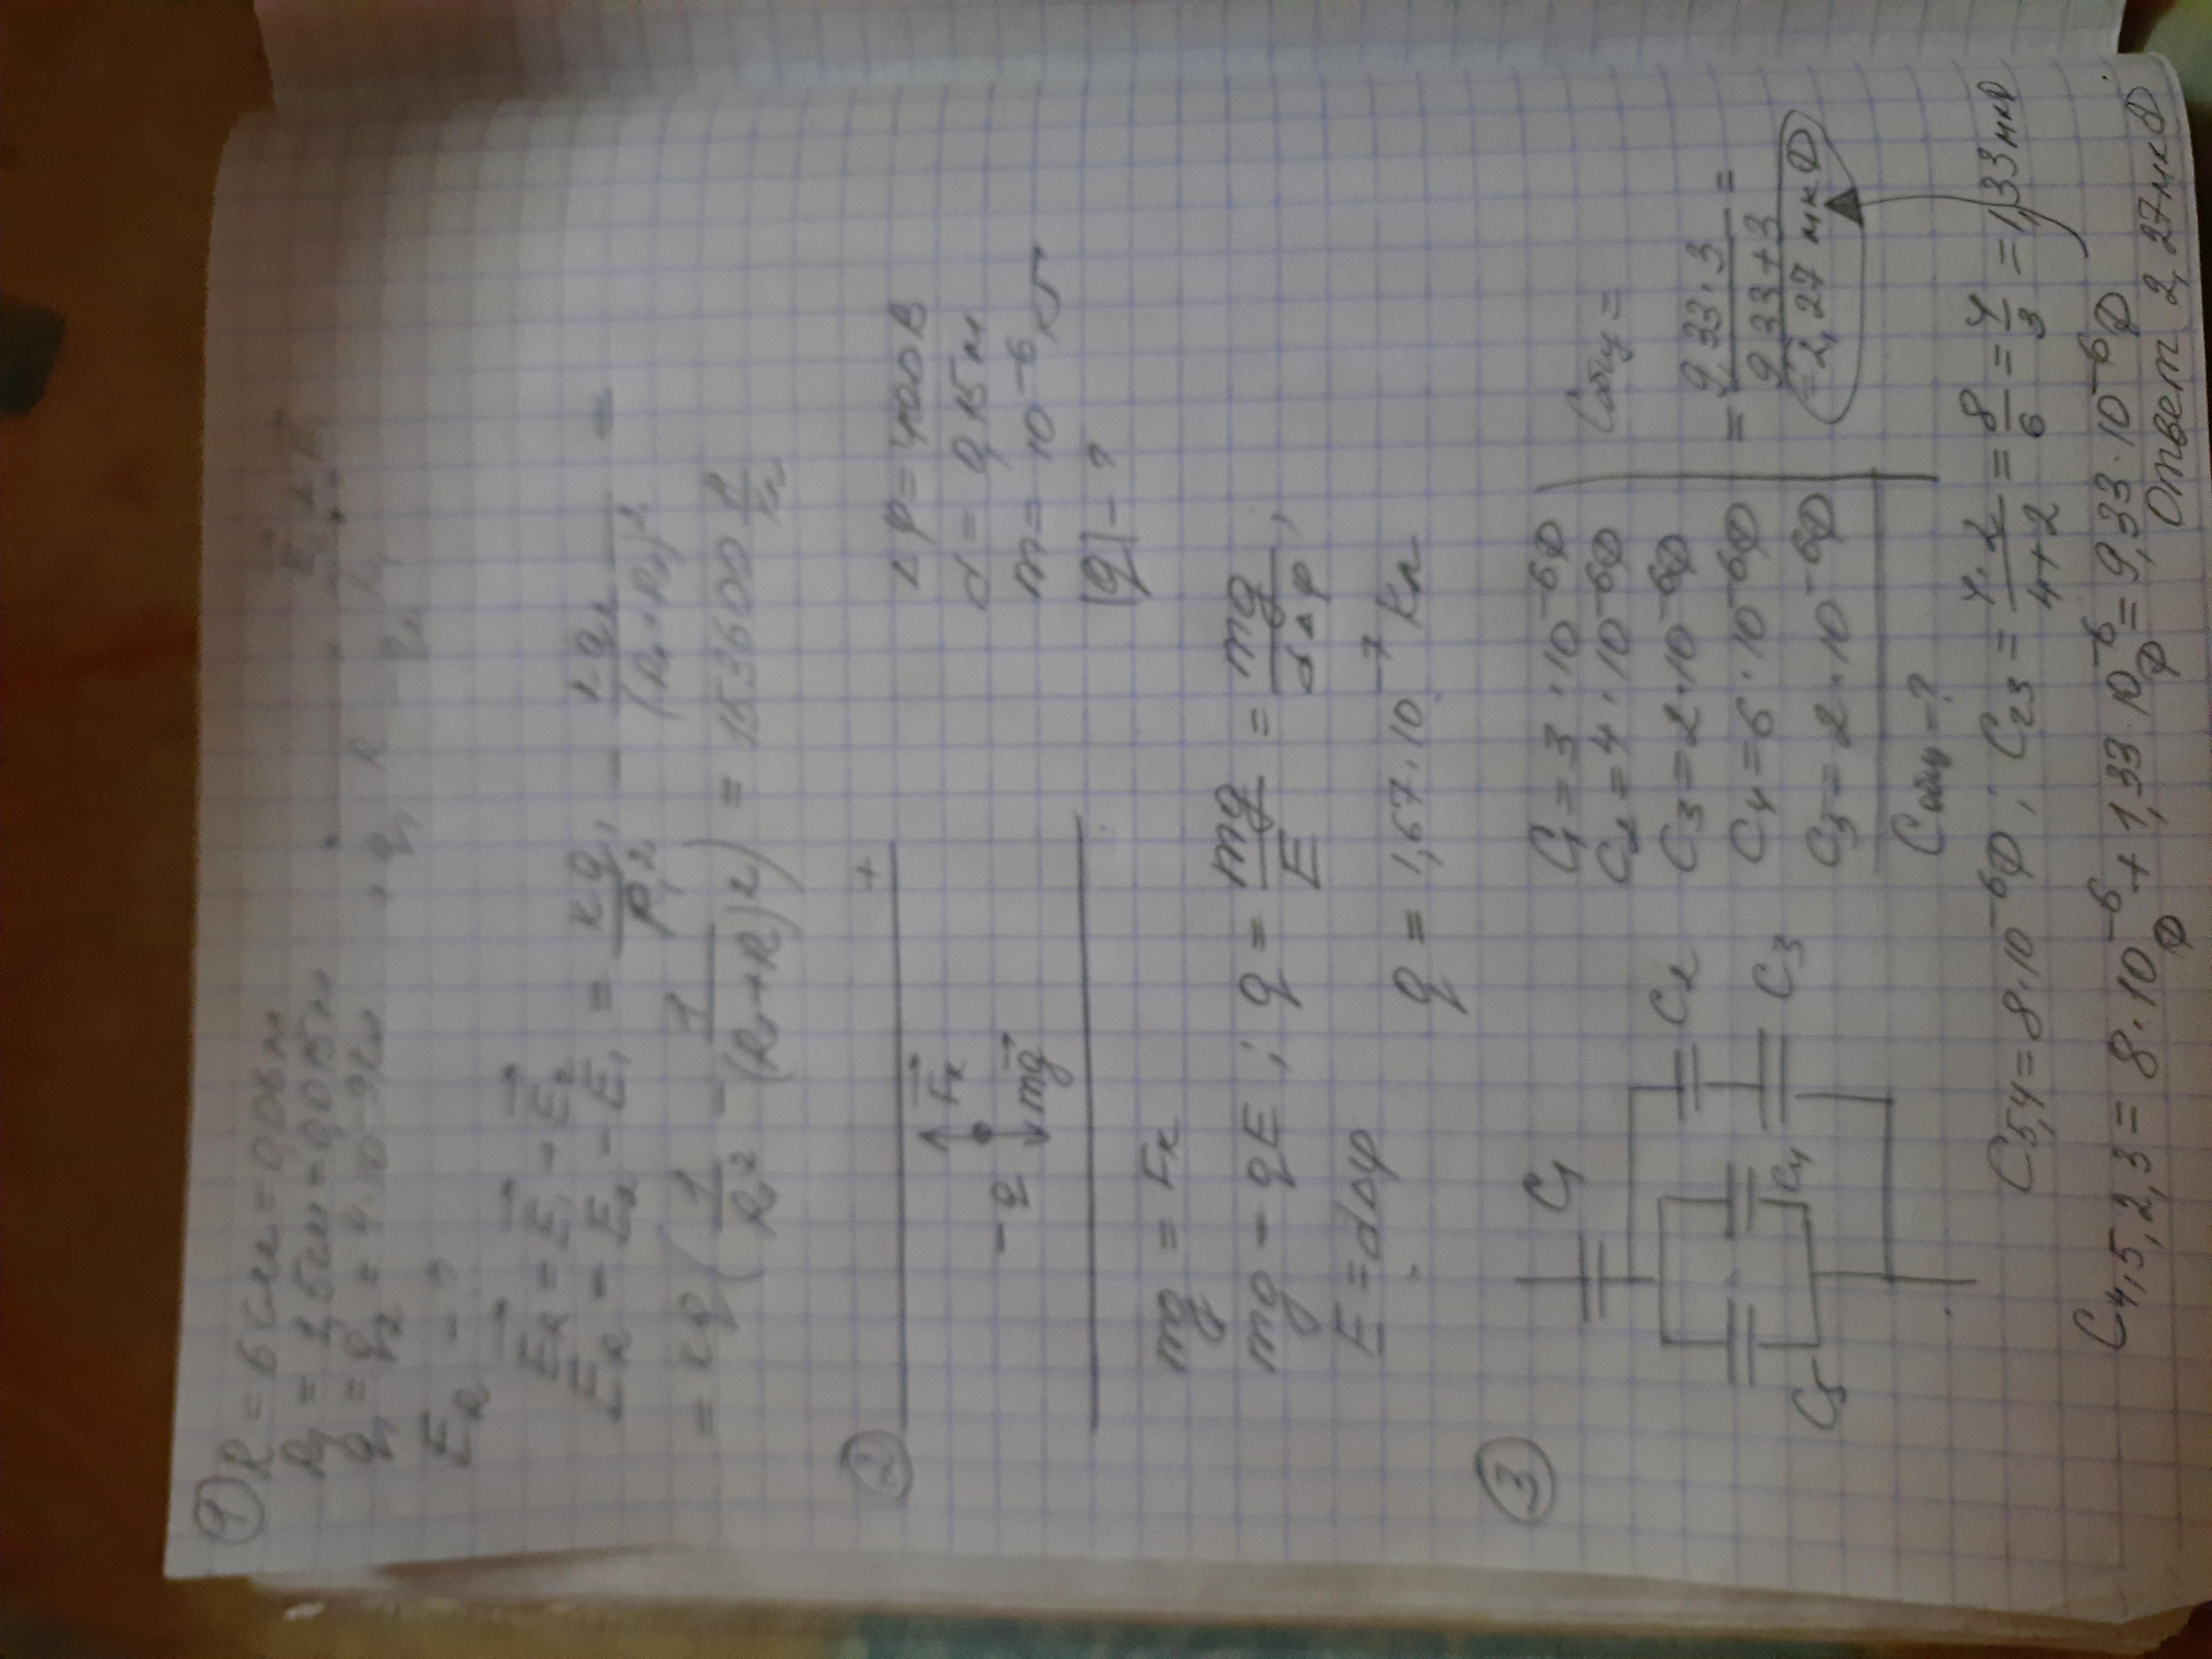 ① R = 6 см = 0,06 м
R₁ = 1,5 см = 0,015 м
q₁ = q₂ = 4·10⁻⁹ Кл
E_R - ?
E_R = E₁ - E₂
= kq₁/R₁² - kq₂/(R₁+R)² =
= kq(1/R₁² - 1/(R₁+R)²) = 153600
②
+
F_к
-q
mg
Δφ = 400 В
d = 0,15 м
m = 10⁻⁶ кг
|q| - ?
mg = F_к
mg = qE ; q = mg/E = mg/dΔφ ,
E = dΔφ
q = 1,67·10⁻⁷ Кл
③
C₁
C₂
C₃
C₄
C₅
C₁ = 3·10⁻⁶ Ф
C₂ = 4·10⁻⁶ Ф
C₃ = 2·10⁻⁶ Ф
C₄ = 6·10⁻⁶ Ф
C₅ = 2·10⁻⁶ Ф
Cобщ - ?
Cобщ =
= 9,33·3/9,33+3 =
= 2,27 мкФ
C₅,₄ = 8·10⁻⁶ Ф ; C₂₃ = 4·2/4+2 = 8/6 = 4/3 = 1,33 мкФ
C₄,₅,₂,₃ = 8·10⁻⁶ Ф + 1,33·10⁻⁶ Ф = 9,33·10⁻⁶ Ф
Ответ 2,27 мкФ